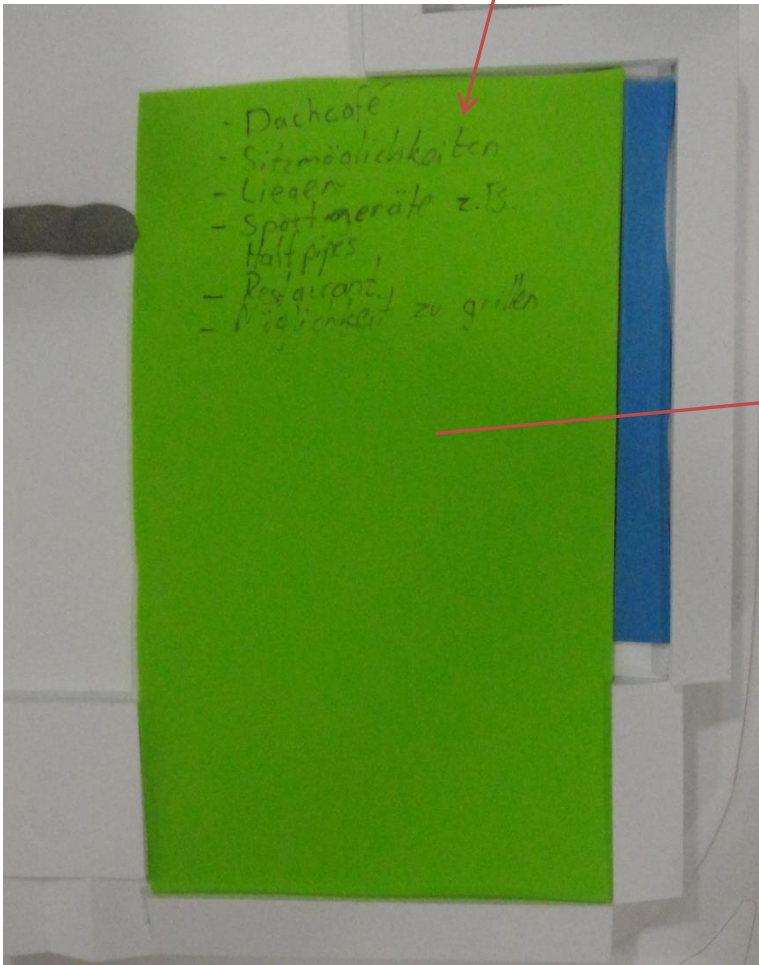 - Dachcafé
- Sitzmöglichkeiten
- Liegen
- Sportgeräte z.B.
Halfpipes
- Restaurant
- Möglichkeit zu grillen